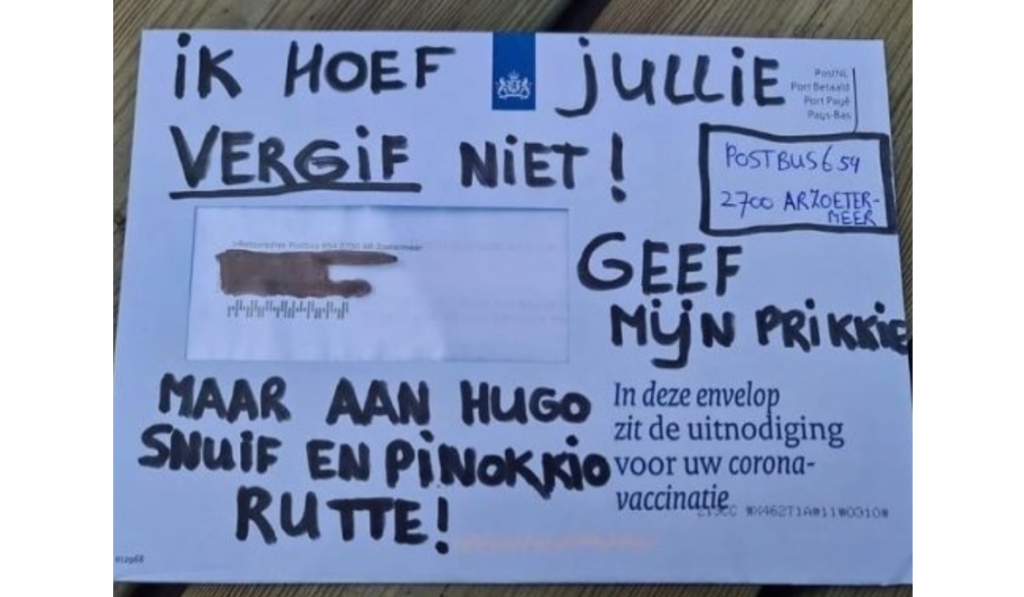 iK HOEF jULLiE
VERGiF NiET!
PostNL
Port Betaald
Port Payé
Pays-Bas
POSTBUS 654
2700 AR ZOETER-
MEER
>Retouradres Postbus 654 2700 AR Zoetermeer
GEEF
MIJN PRiKKiE
MAAR AAN HUGO
SNUiF EN PiNOKKiO
RUTTE!
In deze envelop
zit de uitnodiging
voor uw corona-
vaccinatie